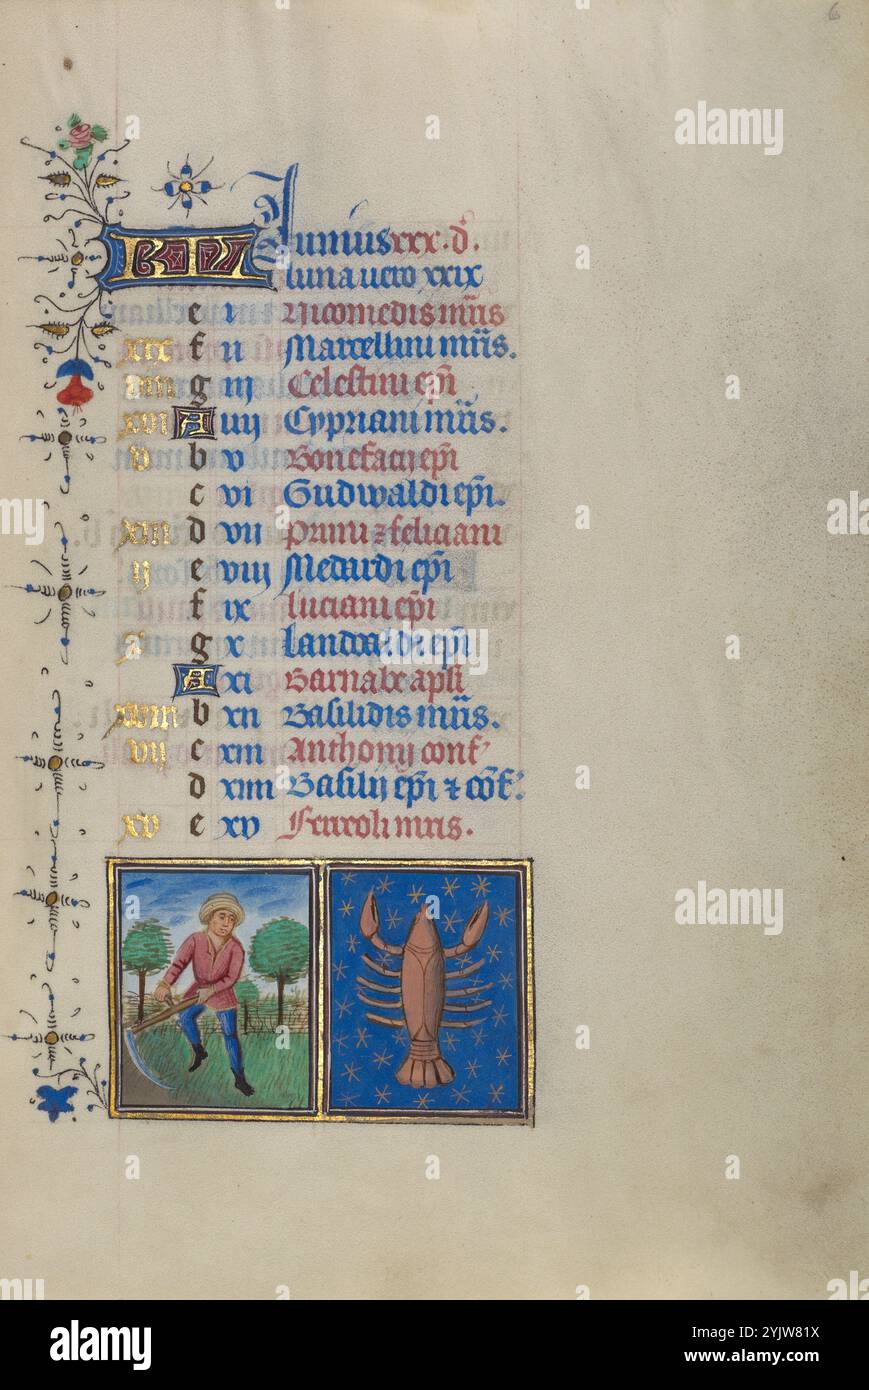 6
KL Iunius xxx. d.
luna vero xxix
e i Nicomedis mr̄is
xix f ii Marcellini mr̄is.
viii g iii Celestini ep̄i
xvi A iiij Cypriani mr̄is.
v b v Bonefacij ep̄i
c vi Gudwaldi ep̄i.
xiii d vii Primi ⁊ feliciani
ij e viij Medardi ep̄i
f ix Luciani ep̄i
x g x Landwaldi ep̄i
A xi Barnabe apl̄i
xviii b xii Basilidis mr̄is.
vij c xiii Anthonij conf'
d xiiii Basilij ep̄i ⁊ cōf.
xv e xv Ferreoli mr̄is.
alamy
Image ID: 2YJW81X
www.alamy.com